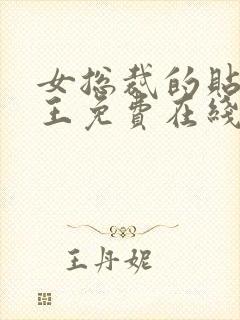 女总裁的贴
王免費在綫
王丹妮